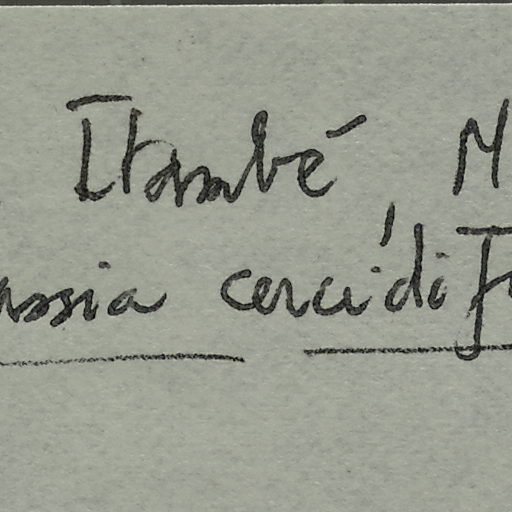 Itambé, M
assia cercidif